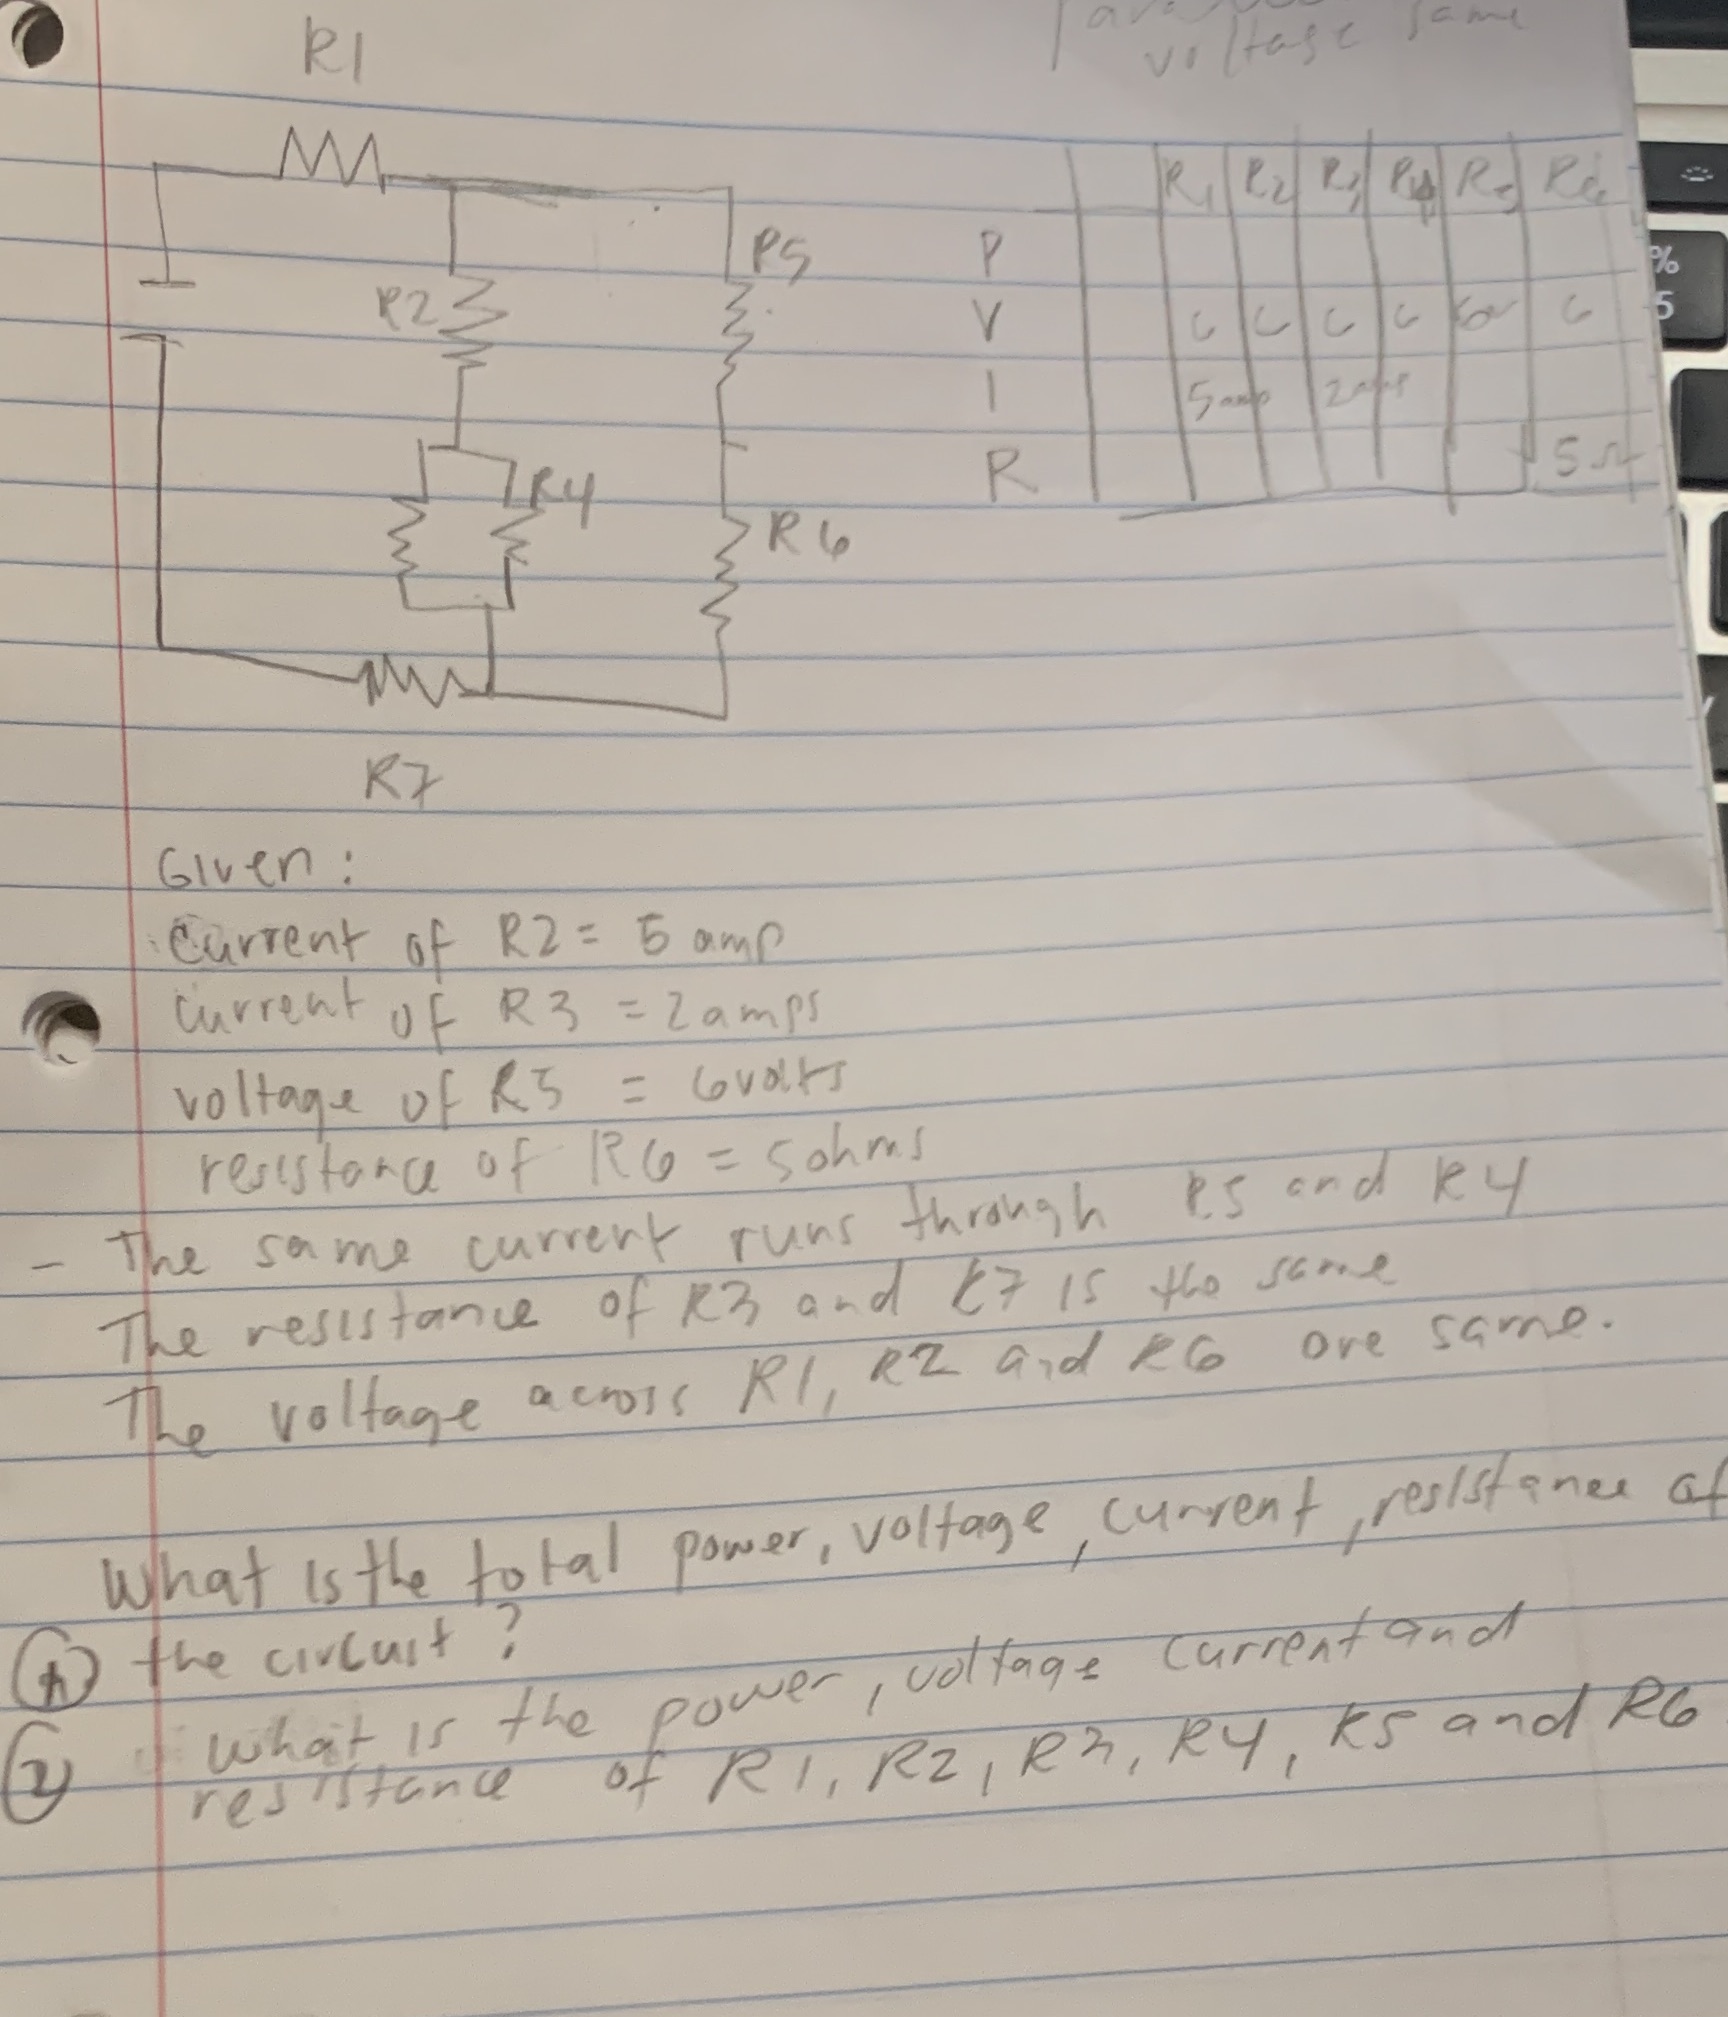 voltage same
R1
R1 R2 R3 R4 R5 R6
R5
P
R2
V 6 6 6 6 6 6
I 5 amp 2 amp
R4
R 5 Ω
R6
R7
Given:
Current of R2 = 5 amp
Current of R3 = 2 amps
voltage of R5 = 6 volts
resistance of R6 = 5 ohms
- The same current runs through R5 and R4
The resistance of R3 and R7 is the same
The voltage across R1, R2 and R6 are same.
What is the total power, voltage, current, resistance of
① the circuit?
② What is the power, voltage current and
resistance of R1, R2, R3, R4, R5 and R6
% 5